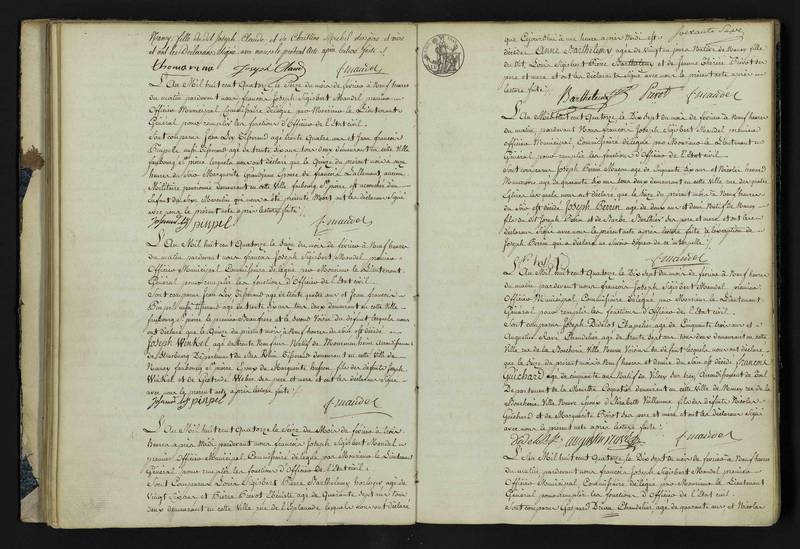 Nancy, fille dudit Joseph Claude et de Christine Michel
et ont les Déclarans signé avec nous le présent acte après lecture faite
thomassin Joseph Claud f. mandel
L'An Mil huit cent Quatorze le Seize du mois de février à Neuf heures
du matin pardevant nous françois Joseph Sigisbert Mandel premier
Officier Municipal Commissaire délégué par Monsieur le Lieutenant
Général pour remplir les fonctions d'Officier de l'Etat civil.
Sont comparus Jean Loy Diformé agé trente Quatre ans et Jean françois
agé de trente six ans tous deux demeurant en cette Ville
faubourg St pierre lesquels nous ont déclaré que le Quinze du présent mois à
heures du Soir Marguerite Epouse de françois Lallemant ancien
Militaire pensionné demeurant en cette Ville faubourg St pierre est accouchée d'un
Enfant du Sexe Masculin qui nous a été présenté Mort et ont les déclarans Signé
avec nous le présent acte après lecture faite
pinpel f. mandel
L'An Mil huit cent Quatorze le Seize du mois de février à Neuf heures
du matin, pardevant nous françois Joseph Sigisbert Mandel premier
Officier Municipal Commissaire délégué par Monsieur le Lieutenant
Général pour remplir les fonctions d'Officier de l'Etat civil.
Sont comparus Jean Loy Diformé agé de trente quatre ans et Jean françois
agé de trente six ans tous deux demeurant en cette Ville
faubourg St pierre le premier Beaufrère et le second Voisin du défunt lesquels nous
ont déclaré que le Quinze du présent mois à Neuf heures du Soir est décédé
Joseph Winkel agé de trente Neuf ans Natif de
de Strasbourg Département du Bas Rhin demeurant en cette Ville de
Nancy faubourg St pierre Epoux de Marguerite fils des défunts Joseph
Winkel et de Gertrude Weber ses père et mère et ont les déclarans Signé
avec nous le présent acte après lecture faite
pinpel f. mandel
L'An Mil huit cent Quatorze le Seize du Mois de février à trois
heures après Midi pardevant nous françois Joseph Sigisbert Mandel
premier Officier Municipal Commissaire délégué par Monsieur le Lieutenant
Général pour remplir les fonctions d'Officier de l'Etat civil.
Sont Comparus Louis Sigisbert Pierre Barthelemy horloger agé de
Vingt Six ans et Pierre Pierrot Ebéniste agé de Quarante Sept ans tous
deux demeurant en cette Ville rue de l'Esplanade lesquels nous ont déclaré
Soixante Sept
que Cejourd'hui à une heure après Midi est
décédée Anne Barthelemy agée de Vingt un jours Native de Nancy fille
du dit Louis Sigisbert Pierre Barthelemy et de femme Thérèse Pierrot ses
père et mère et ont les déclarans Signé avec nous le présent acte après
lecture faite
Barthelemy Pierrot f. mandel
L'An Mil huit cent Quatorze le Dix Sept du mois de février à Neuf heures
du matin, pardevant Nous françois Joseph Sigisbert Mandel premier
Officier Municipal Commissaire délégué par Monsieur le Lieutenant
Général pour remplir les fonctions d'Officier de l'Etat civil.
Sont comparus Joseph Perrin agé de Cinquante ans et Nicolas
agé de quarante six ans tous deux demeurant en cette Ville rue des
lesquels nous ont déclaré que le Seize du présent mois à Neuf heures
du Soir est décédé Joseph Perrin agé de deux ans et demi Natif de Nancy
fils du dit Joseph Perrin et de Barbe ses père et mère, et ont les
déclarans Signé avec nous le présent acte après lecture faite à l'exception de
Joseph Perrin qui a déclaré ne Savoir Signer de ce interpellé
f. mandel
L'An Mil huit cent Quatorze le Dix Sept du mois de février à Neuf heures
du matin pardevant nous françois Joseph Sigisbert Mandel premier
Officier Municipal Commissaire délégué par Monsieur le Lieutenant
Général pour remplir les fonctions d'Officier de l'Etat civil.
Sont comparus Joseph Didelot Chapelier agé de Cinquante trois ans et
Augustin Chandelier agé de trente Sept ans tous deux demeurant en cette
Ville rue de la Boucherie Ville Neuve Voisins du défunt lesquels nous ont déclaré
que le Seize du présent mois à Neuf heures et demie du Soir est décédé françois
Guichard agé de cinquante un Natif de
Département de la Meurthe demeurant en cette Ville de Nancy rue de la
Boucherie Ville Neuve Epoux d'Elisabeth Vuillaume fils des défunts Nicolas
Guichard et de Marguerite ses père et mère et ont les déclarans Signé
avec nous le présent acte après lecture faite
Didelot augustin f. mandel
L'An Mil huit cent Quatorze le Dix Sept du mois de février à Neuf heures
du matin, pardevant nous françois Joseph Sigisbert Mandel premier
Officier Municipal Commissaire délégué par Monsieur le Lieutenant
Général pour remplir les fonctions d'Officier de l'Etat civil.
Sont comparus Gaspard Chandelier, agé de quarante ans, et Nicolas